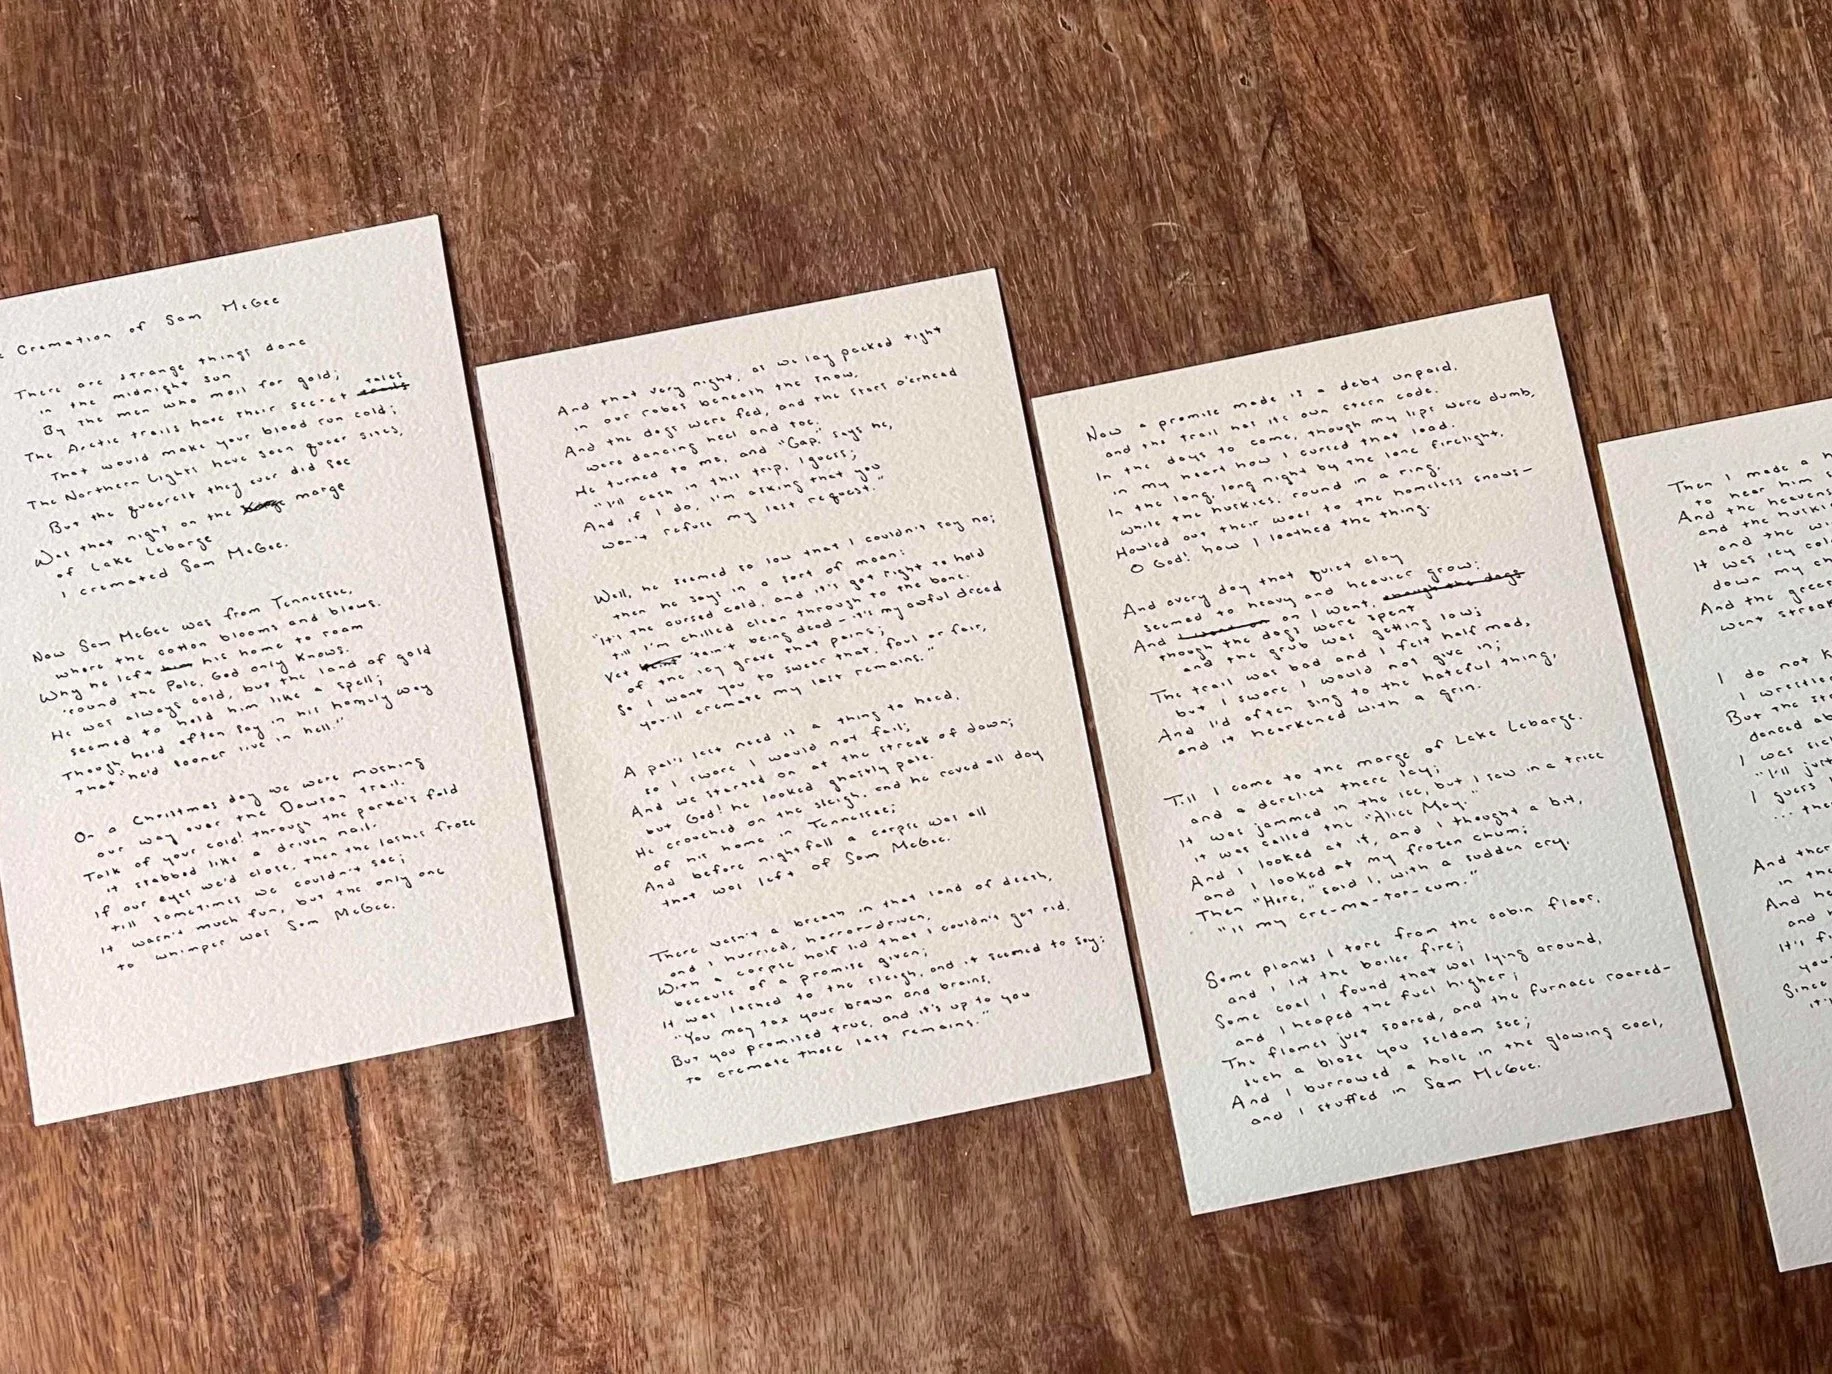 Cremation of Sam McGee
There are strange things done
in the midnight sun
By the men who moil for gold;
The Arctic trails have their secret tales
That would make your blood run cold;
The Northern Lights have seen queer sites,
But the queerest they ever did see
Was that night on the marge
of Lake Lebarge
I cremated Sam McGee.
Now Sam McGee was from Tennessee,
where the cotton blooms and blows.
Why he left his home to roam
'round the Pole, God only knows.
He was always cold, but the land of gold
seemed to hold him like a spell;
Though he'd often say in his homely way
that "he'd sooner live in hell."
On a Christmas day we were mushing
our way over the Dawson trail.
Talk of your cold! through the parka's fold
it stabbed like a driven nail.
If our eyes we'd close, then the lashes froze
till sometimes we couldn't see;
It wasn't much fun, but the only one
to whimper was Sam McGee.
And that very night, as we lay packed tight
in our robes beneath the snow,
And the dogs were fed, and the stars o'erhead
were dancing heel and toe;
He turned to me, and "Cap," says he,
"I'll cash in this trip, I guess;
And if I do, I'm asking that you
won't refuse my last request."
Well, he seemed so low that I couldn't say no;
then he says in a sort of moan:
"It's the cursed cold, and it's got right to hold
till I'm chilled clean through to the bone.
Yet 'tain't being dead—it's my awful dread
of the icy grave that pains;
So I want you to swear that, foul or fair,
you'll cremate my last remains."
A pal's last need is a thing to heed,
so I swore I would not fail;
And we started on at the streak of dawn;
but God! he looked ghastly pale.
He crouched on the sleigh, and he raved all day
of his home in Tennessee;
And before nightfall a corpse was all
that was left of Sam McGee.
There wasn't a breath in that land of death,
and I hurried, horror-driven,
With a corpse half hid that I couldn't get rid,
because of a promise given;
It was lashed to the sleigh, and it seemed to say:
"You may tax your brawn and brains,
But you promised true, and it's up to you
to cremate those last remains."
Now a promise made is a debt unpaid,
and the trail has its own stern code.
In the days to come, though my lips were dumb,
in my heart how I cursed that load.
In the long, long night by the lone firelight,
while the huskies, round in a ring,
Howled out their woes to the homeless snows—
O God! how I loathed the thing.
And every day that quiet clay
seemed to heavy and heavier grow;
And on I went,
though the dogs were spent
and the grub was getting low;
The trail was bad and I felt half mad,
but I swore I would not give in;
And I'd often sing to the hateful thing,
and it hearkened with a grin.
Till I came to the marge of Lake Lebarge,
and a derelict there lay;
It was jammed in the ice, but I saw in a trice
it was called the "Alice May."
And I looked at it, and I thought a bit,
and I looked at my frozen chum;
Then "Here," said I, with a sudden cry,
"is my cre-ma-tor-eum."
Some planks I tore from the cabin floor,
and I lit the boiler fire;
Some coal I found that was lying around,
and I heaped the fuel higher;
The flames just soared, and the furnace roared—
such a blaze you seldom see;
And I burrowed a hole in the glowing coal,
and I stuffed in Sam McGee.
Then I made a
to hear him
And the heavens
and the
and the
It was icy
down my
And the
went
I do not
I
But the
danced
I was
"I'll just
I guess
...
And
in the
And he
and
It's
Since